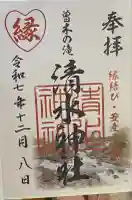 奉拝
縁結び・安産
曽木の滝
清水神社
縁
令和七年十二月八日